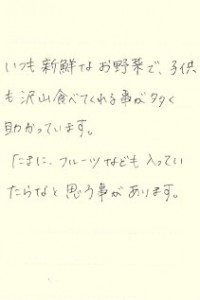 いつも新鮮なお野菜で、子供
も沢山食べてくれる事が多く
助かっています。
たまに、フルーツなども入ってい
たらなと思う事があります。